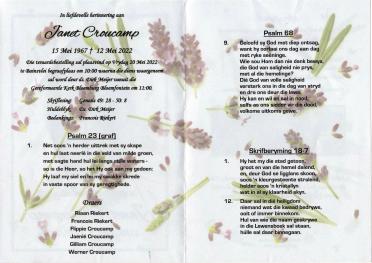 In liefdevolle herinnering aan
Janet Croucamp
15 Mei 1967 † 12 Mei 2022
Die teraardebestelling sal plaasvind op Vrydag 20 Mei 2022
te Bainsvlei begraafplaas om 10:00 waarna die diens waargeneem
sal word deur ds Dirk Meijer vanuit die
Gereformeerde Kerk Bloemburg Bloemfontein om 11:00.
Skriflesing Genesis 49: 28 - 50: 8
Huldeblyk Ds. Dirk Meijer
Bedankings Francois Riekert
Psalm 23 [graf]
1. Net soos 'n herder uittrek met sy skape
en hul laat neerlê in die veld van milde groen,
met sagte hand hul lei langs stille waters -
so is die Heer, so het Hy ook aan my gedoen:
Hy laaf my siel en lei my swakke skrede
in vaste spoor van sy geregtighede.
Draers
Riaan Riekert
Francois Riekert
Flippie Croucamp
Jaenié Croucamp
Gilliam Croucamp
Werner Croucamp
Psalm 68
9. Geloofd sy God met diep ontsag,
want hy oorlaai ons dag aan dag
met ryke seëninge.
Wie sou Hom dan nie dank bewys,
die God van saligheid nie prys,
met al die hemelinge?
Dié God van volle saligheid
versterk ons in die dag van stryd
en dra ons deur die lewe.
Hy kan en wil en sal in nood,
selfs as ons nader vir die dood,
volkome uitkoms gewe.
Skrifberyming 18-7
1. Hy het my die stad getoon,
groot en van die hemel dalend,
en, deur God se ligglans skoon,
soos 'n kleurgesteente stralend,
helder soos 'n kristallyn
wat in al sy klaarheid skyn.
12. Daar sal in die heiligdom
niemand wat die kwaad bedrywe,
ooit of immer binnekom.
Hul van wie die naam geskrywe
in die Lewensboek sal staan,
húlle sal daar binnegaan.